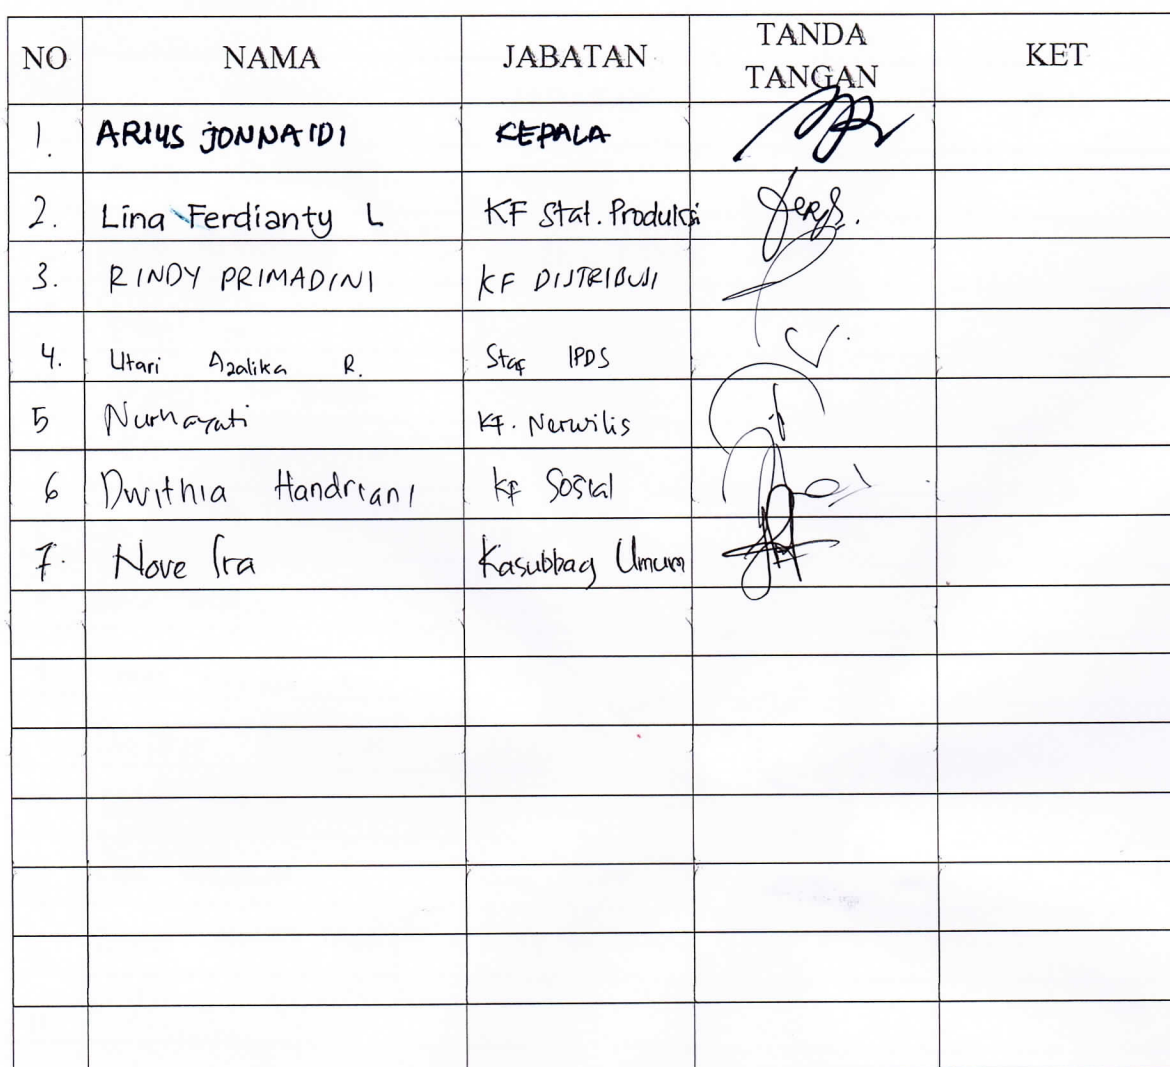 NO NAMA JABATAN TANDA TANGAN KET
1. ARIUS JONNAIDI KEPALA
2. Lina Ferdianty L KF Stat. Produksi
3. RINDY PRIMADINI KF DISTRIBUSI
4. Utari Azalika R. Staf IPDS
5 Nurhayati KF. Nerwilis
6 Dwithia Handriani KF Sosial
7. Nove Ira Kasubbag Umum